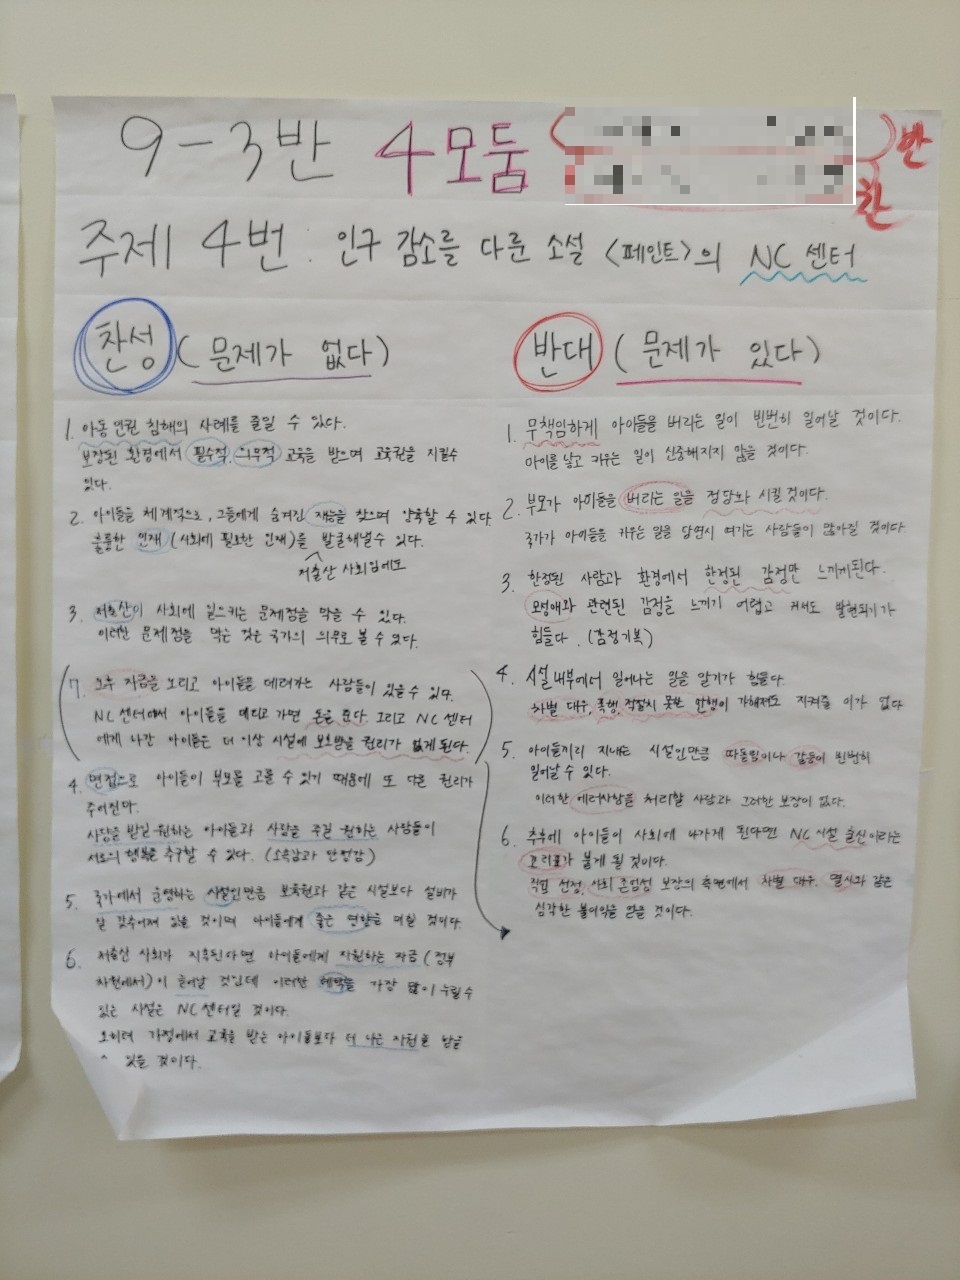 9-3반 4모둠
반
찬
주제 4번 : 인구 감소를 다룬 소설 <페인트>의 NC 센터
찬성 (문제가 없다)
1. 아동 인권 침해의 사례를 줄일 수 있다.
보장된 환경에서 필수적, 의무적 교육을 받으며 교육권을 지킬수
있다.
2. 아이들을 체계적으로, 그들에게 숨겨진 재능을 찾으며 양육할 수 있다
훌륭한 인재 (사회에 필요한 인재)를 발굴해낼수 있다.
저출산 사회임에도
3. 저출산이 사회에 일으키는 문제점을 막을 수 있다.
이러한 문제점을 막는 것은 국가의 의무로 볼 수 있다.
7. 노후 자금을 노리고 아이들을 데려가는 사람들이 있을 수 있다.
NC 센터에서 아이들을 데리고 가면 돈을 준다. 그리고 NC 센터
에게 나간 아이들은 더 이상 시설에 보호받을 권리가 없게 된다.
4. 면접으로 아이들이 부모를 고를 수 있기 때문에 또 다른 권리가
주어진다.
사랑을 받길 원하는 아이들과 사랑을 주길 원하는 사람들이
서로의 행복을 추구할 수 있다. (소속감과 안정감)
5. 국가에서 운영하는 시설인만큼 보육원과 같은 시설보다 설비가
잘 갖추어져 있을 것이며 아이들에게 좋은 영향을 미칠 것이다.
6. 저출산 사회가 지속된다면 아이들에게 지원하는 자금 (정부
차원에서)이 늘어날 것인데 이러한 혜택을 가장 많이 누릴 수
있는 시설은 NC 센터일 것이다.
오히려 가정에서 교육을 받는 아이들보다 더 나은 지원을 받을
수 있을 것이다.
반대 (문제가 있다)
1. 무책임하게 아이들을 버리는 일이 빈번히 일어날 것이다.
아이를 낳고 키우는 일이 신중해지지 않을 것이다.
2. 부모가 아이들을 버리는 일을 정당화 시킬 것이다.
국가가 아이들을 키우는 일을 당연시 여기는 사람들이 많아질 것이다.
3. 한정된 사람과 환경에서 한정된 감정만 느끼게된다.
모성애와 관련된 감정을 느끼기 어렵고 커서도 발현되기가
힘들다. (감정기복)
4. 시설 내부에서 일어나는 일을 알기가 힘들다.
차별 대우, 폭행, 적절치 못한 만행이 가해져도 지켜줄 이가 없다
5. 아이들끼리 지내는 시설인만큼 따돌림이나 갈등이 빈번히
일어날 수 있다.
이러한 애러사항을 처리할 사람과 그러한 보장이 없다.
6. 추후에 아이들이 사회에 나가게 된다면 NC 시설 출신이라는
꼬리표가 붙게 될 것이다.
직업 선정, 사회 존엄성 보장의 측면에서 차별 대우, 멸시와 같은
심각한 불이익을 얻을 것이다.